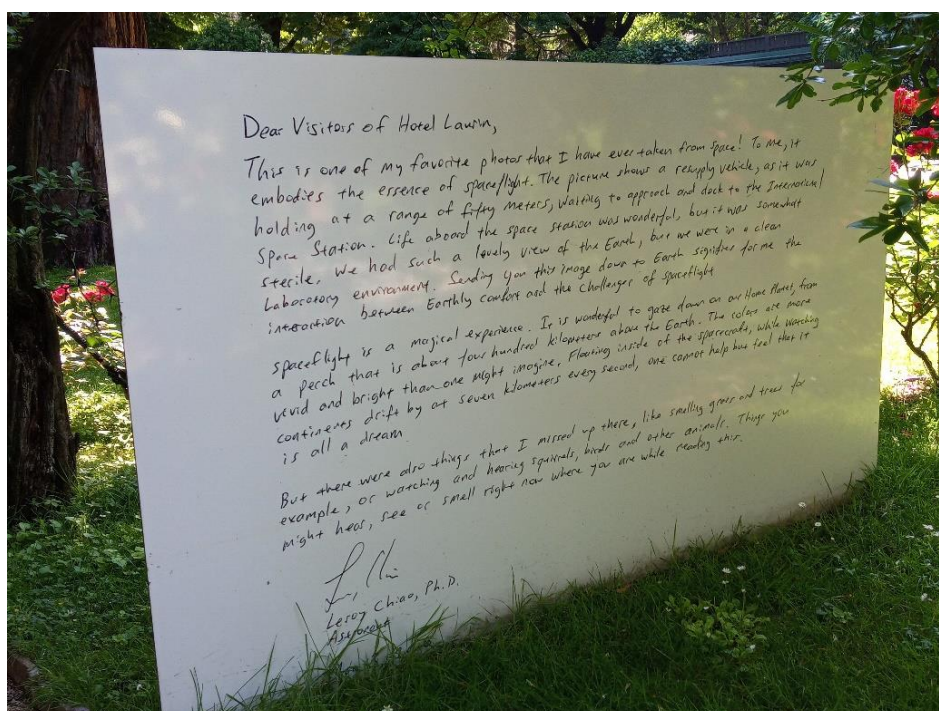 Dear Visitors of Hotel Laurin,
This is one of my favorite photos that I have ever taken from space! To me, it
embodies the essence of spaceflight. The picture shows a resupply vehicle, as it was
holding at a range of fifty meters, waiting to approach and dock to the International
Space Station. Life aboard the space station was wonderful, but it was somewhat
sterile. We had such a lovely view of the Earth, but we were in a clean
Laboratory environment. Sending you this image down to Earth signifies for me the
interaction between Earthly comfort and the challenges of spaceflight
spaceflight is a magical experience. It is wonderful to gaze down on our Home Planet, from
a perch that is about four hundred kilometers above the Earth. The colors are more
vivid and bright than one might imagine. Floating inside of the spacecraft, while watching
continents drift by at seven kilometers every second, one cannot help but feel that it
is all a dream
But there were also things that I missed up there, like smelling grass and trees for
example, or watching and hearing squirrels, birds and other animals. Things you
might hear, see or smell right now where you are while reading this.
Leroy Chiao, Ph.D.
Astronaut